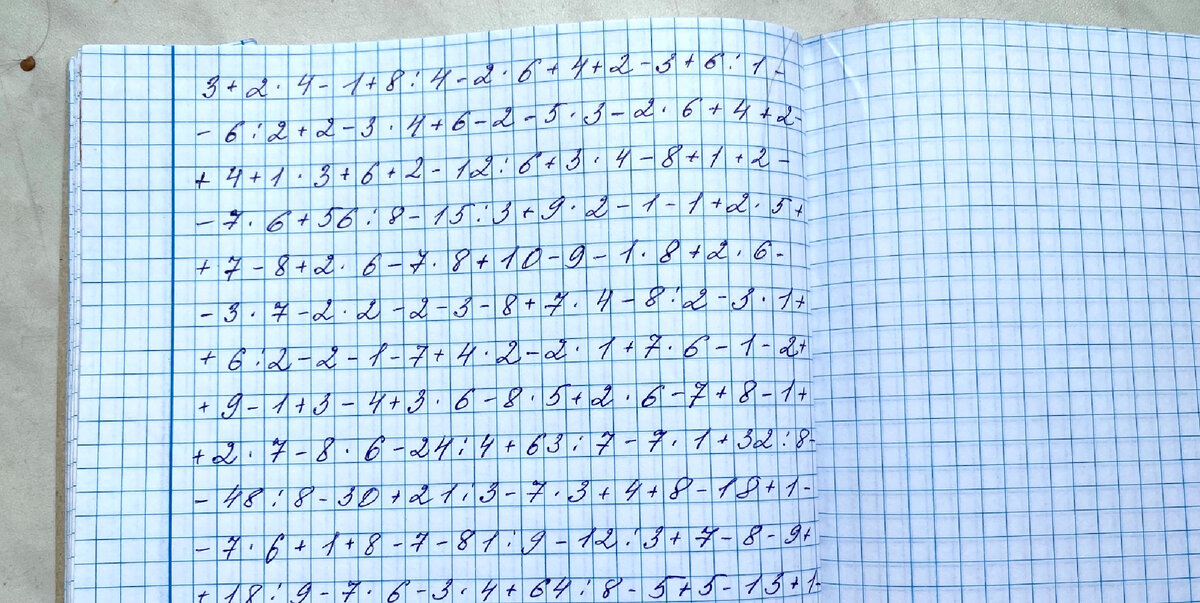 3+2·4-1+8:4-2·6+4+2-3+6:1-
-6:2+2-3·4+6-2-5·3-2·6+4+2-
+4+1·3+6+2-12:6+3·4-8+1+2-
-7·6+56:8-15:3+9·2-1-1+2·5+
+7-8+2·6-7·8+10-9-1·8+2·6-
-3·7-2·2-2-3-8+7·4-8:2-3·1+
+6:2-2-1-7+4·2-2·1+7·6-1-2+
+9-1+3-4+3·6-8·5+2·6-7+8-1+
+2·7-8·6-24:4+63:7-7·1+32:8-
-48:8-30+21:3-7·3+4+8-18+1-
-7·6+1+8-7-81:9-12:3+7-8-9+
+18:9-7·6-3·4+64:8-5+5-13+1-